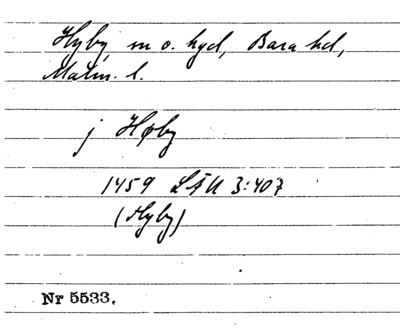 Hyby, sn o. hgd, Bara hd,
Malm. l.
j Høby
1459 LÄU 3:407
(Hyby)
Nr 5533.